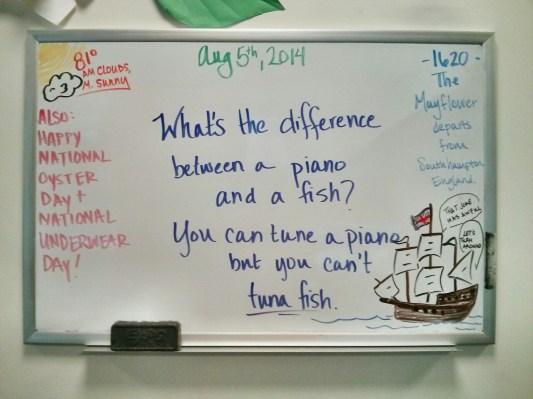 81°
AM CLOUDS,
M. SUNNY
Aug 5th, 2014
-1620-
The
Mayflower
departs
from
Southhampton
England.
ALSO:
HAPPY
NATIONAL
OYSTER
DAY +
NATIONAL
UNDERWEAR
DAY!
What's the difference
between a piano
and a fish?
You can tune a piano
but you can't
tuna fish.
THAT JOKE
WAS AWFUL
LET'S
TURN
AROUND